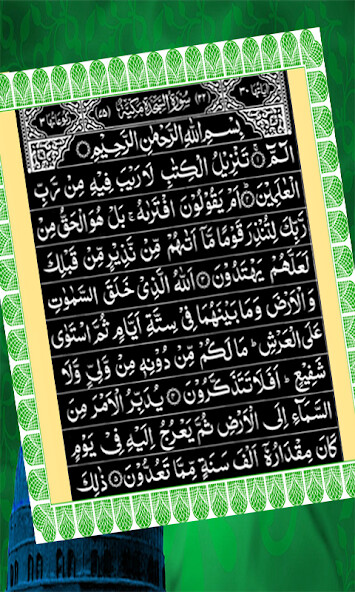 اٰيَاتُهَا ٣٠ (٣٢) سُوْرَةُ السَّجْدَةِ مَكِّيَّةٌ (٧٥) رُكُوْعَاتُهَا ٣
بِسْمِ اللّٰهِ الرَّحْمٰنِ الرَّحِيْمِ
الٓمّٓ ۚ تَنْزِيْلُ الْكِتٰبِ لَا رَيْبَ فِيْهِ مِنْ رَّبِّ
الْعٰلَمِيْنَ ؕ اَمْ يَقُوْلُوْنَ افْتَرٰىهُ ۚ بَلْ هُوَ الْحَقُّ مِنْ
رَّبِّكَ لِتُنْذِرَ قَوْمًا مَّاۤ اَتٰىهُمْ مِّنْ نَّذِيْرٍ مِّنْ قَبْلِكَ
لَعَلَّهُمْ يَهْتَدُوْنَ ۝ اَللّٰهُ الَّذِيْ خَلَقَ السَّمٰوٰتِ
وَ الْاَرْضَ وَمَا بَيْنَهُمَا فِيْ سِتَّةِ اَيَّامٍ ثُمَّ اسْتَوٰى
عَلَى الْعَرْشِ ؕ مَا لَكُمْ مِّنْ دُوْنِهٖ مِنْ وَّلِيٍّ وَّلَا
شَفِيْعٍ ؕ اَفَلَا تَتَذَكَّرُوْنَ ۝ يُدَبِّرُ الْاَمْرَ مِنَ
السَّمَآءِ اِلَى الْاَرْضِ ثُمَّ يَعْرُجُ اِلَيْهِ فِيْ يَوْمٍ
كَانَ مِقْدَارُهٗۤ اَلْفَ سَنَةٍ مِّمَّا تَعُدُّوْنَ ۝ ذٰلِكَ